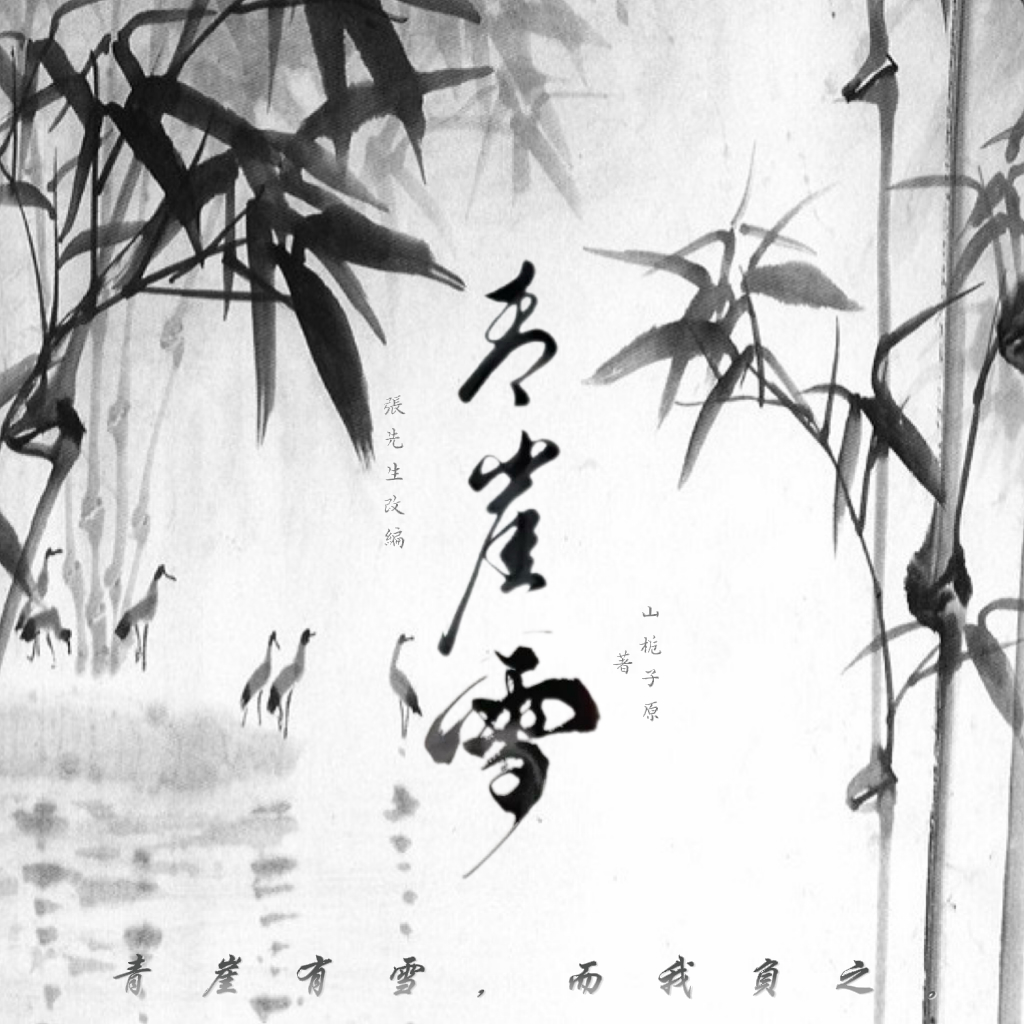 青崖雪
山栀子原
著
張先生改編
青崖有雪，而我負之。